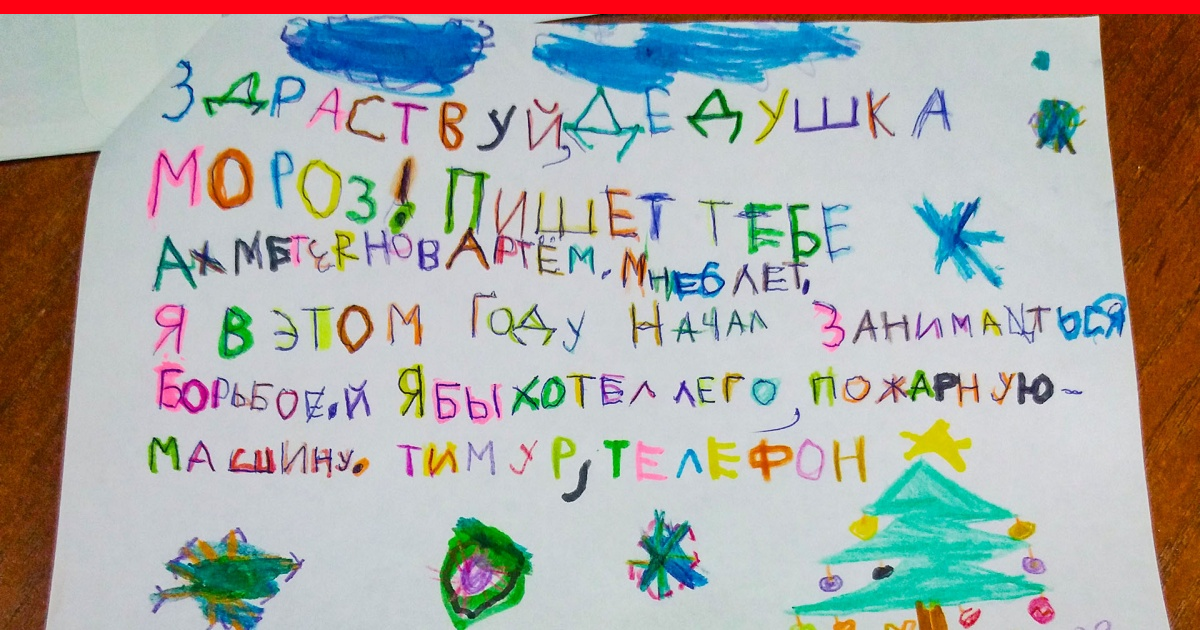 ЗДРАСТВУЙ, ДЕДУШКА
МОРОЗ! ПИШЕТ ТЕБЕ
АХМЕТЯНОВ АРТЁМ. МНЕ 6 ЛЕТ.
Я В ЭТОМ ГОДУ НАЧАЛ ЗАНИМАТЬСЯ
БОРЬБОЕ.Й Я БЫ ХОТЕЛ ЛЕГО, ПОЖАРНУЮ-
МАШИНУ. ТИМУР, ТЕЛЕФОН